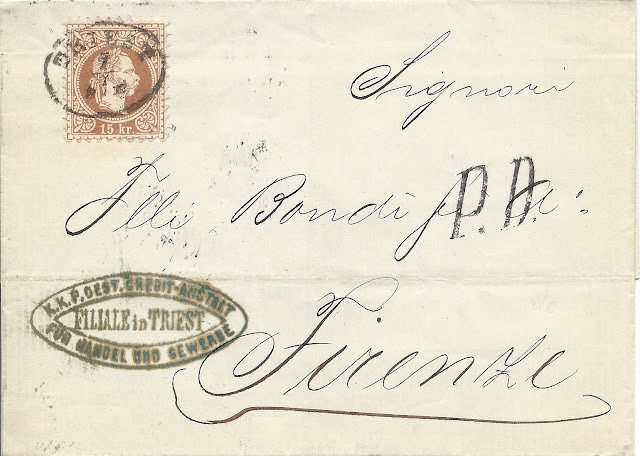 TRIEST
15 kr.
Signori
Flli Bondi
P.D.
K.K.P. OEST. CREDIT-ANSTALT
FILIALE in TRIEST
FÜR HANDEL UND GEWERBE
Firenze